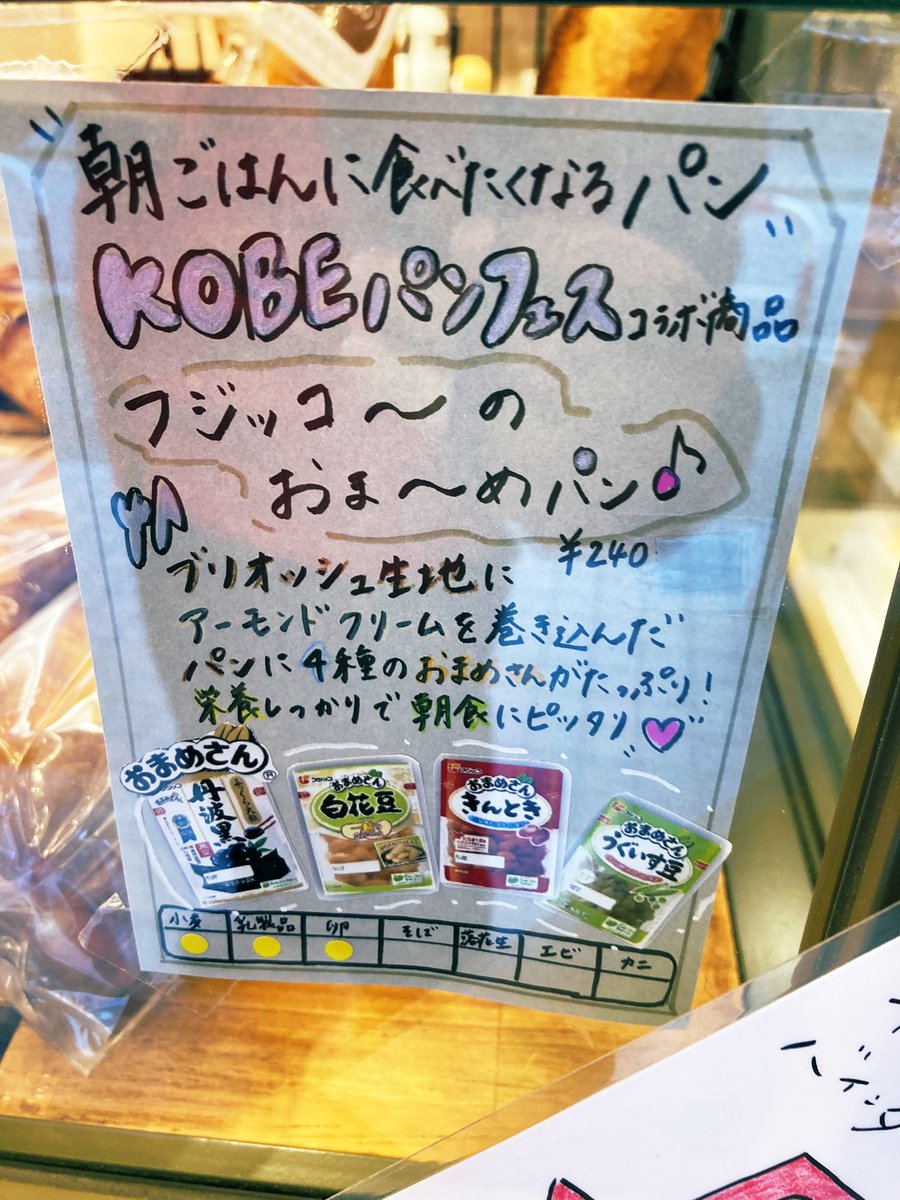 朝ごはんに食べたくなるパン
KOBEパンフェスコラボ商品
フジッコ〜の
おま〜めパン♪
¥240
ブリオッシュ生地に
アーモンドクリームを巻き込んだ
パンに4種のおまめさんがたっぷり!
栄養しっかりで朝食にピッタリ
おまめさん®
丹波黒
フジッコ
おまめさん
白花豆
フジッコ
おまめさん
きんとき
おまめさん
うぐいす豆
小麦 乳製品 卵 そば 落花生 エビ カニ